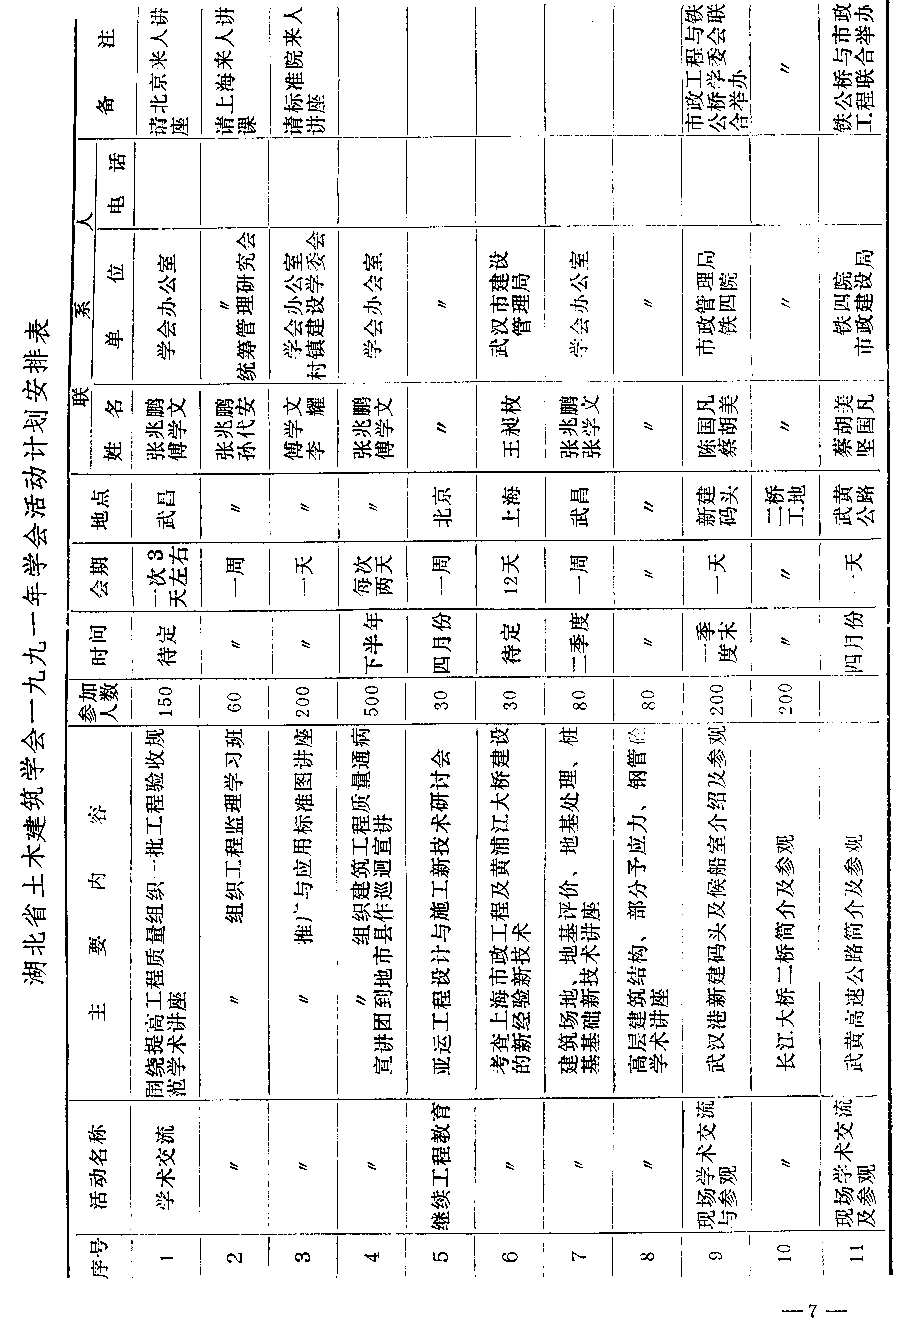 湖北省土木建筑学会一九九一年学会活动计划安排表
序号 活动名称 主要内容 参加人数 时间 会期 地点 联系人 备注
姓名 单位 电话
1 学术交流 围绕提高工程质量组织一批工程验收规范学术讲座 150 待定 一次3天左右 武昌 张兆鹏 傅学文 学会办公室 请北京来人讲座
2 〃 〃 组织工程监理学习班 60 〃 一周 〃 张兆鹏 孙代安 〃 统筹管理研究会 请上海来人讲课
3 〃 〃 推广与应用标准图讲座 200 〃 一天 〃 傅学文 李耀 学会办公室 村镇建设学委会 请标准院来人讲座
4 〃 〃 组织建筑工程质量通病宣讲团到地市县作巡迴宣讲 500 下半年 每次两天 〃 张兆鹏 傅学文 学会办会室
5 继续工程教育 亚运工程设计与施工新技术研讨会 30 四月份 一周 北京 〃 〃
6 〃 考查上海市政工程及黄浦江大桥建设的新经验新技术 30 待定 12天 上海 王昶枚 武汉市建设管理局
7 〃 建筑场地、地基评价、地基处理、桩基基础新技术讲座 80 二季度 一周 武昌 张兆鹏 张学文 学会办公室
8 〃 高层建筑结构、部分予应力、钢管砼学术讲座 80 〃 〃 〃 〃 〃
9 现场学术交流与参观 武汉港新建码头及候船室介绍及参观 200 一季度末 一天 新建码头 陈国凡 蔡胡美 市政管理局 铁四院 市政工程与铁公桥学委会联合举办
10 〃 长江大桥二桥简介及参观 200 〃 〃 二桥工地 〃 〃 〃
11 现场学术交流及参观 武黄高速公路简介及参观 四月份 一天 武黄公路 蔡胡美 坚国凡 铁四院 市政建设局 铁公桥与市政工程联合举办
—7—